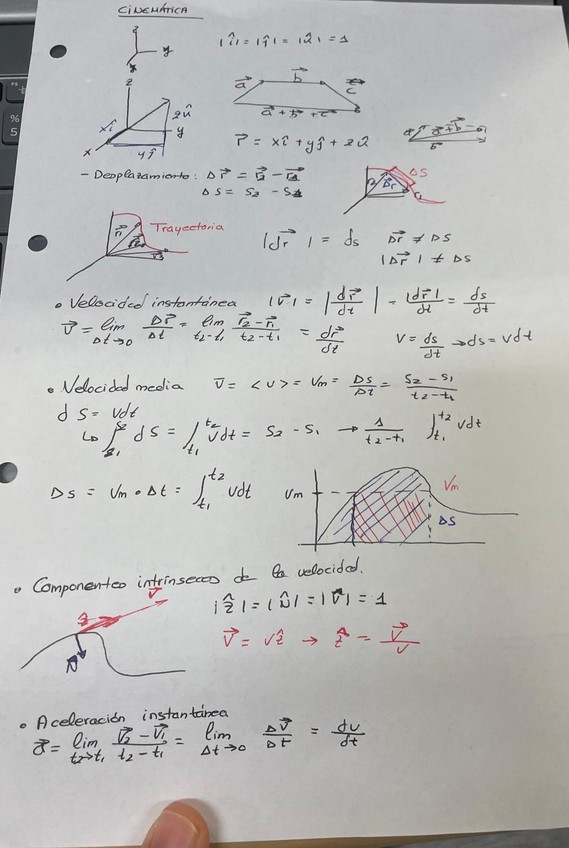 CINEMÁTICA
z
y
x
|î| = |ĵ| = |û| = 1
z
zû
xî
y
x
yĵ
a⃗
b⃗
c⃗
a⃗ + b⃗ + c⃗
r⃗ = xî + yĵ + zû
a⃗
b⃗
- Desplazamiento: Δr⃗ = r⃗₂ - r⃗₁
ΔS = S₂ - S₁
ΔS
r₂
Δr
r₁
r⃗₁
Trayectoria
|dr⃗| = ds
Δr⃗ ≠ ΔS
|Δr⃗| ≠ ΔS
• Velocidad instantánea |v⃗| = |dr⃗/dt| = |dr⃗|/dt = ds/dt
v⃗ = lim Δt→0 Δr⃗/Δt = lim t₂-t₁ r⃗₂-r⃗₁/t₂-t₁ = dr⃗/dt
v = ds/dt → ds = vdt
• Velocidad media v̄ = <v> = Vm = Δs/Δt = S₂ - S₁/t₂-t₁
dS = vdt
↳ ∫ dS = ∫t₁ t₂ vdt = S₂ - S₁ → 1/t₂-t₁ ∫t₁ t₂ vdt
Δs = Vm · Δt = ∫t₁ t₂ vdt
Vm
Vm
ΔS
• Componentes intrínsecas de la velocidad.
v⃗
N
|τ̂| = |N̂| = |V̂| = 1
v⃗ = vτ̂ → τ̂ = v⃗/v
• Aceleración instantánea
a⃗ = lim t₂→t₁ v⃗₂-v⃗₁/t₂-t₁ = lim Δt→0 Δv⃗/Δt = dv/dt